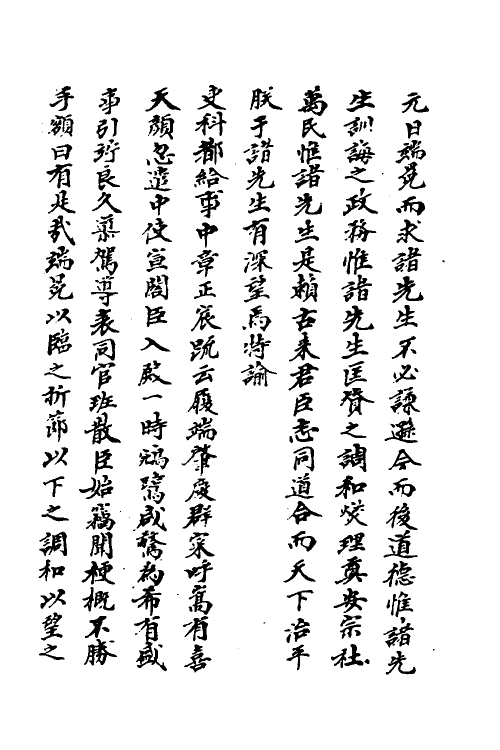 元日端冕而求諸先生不必謙遜今而後道德惟諸先
生訓誨之政務惟諸先生匡賛之調和爕理奠安宗社
萬民惟諸先生是賴古来君臣志同道合而天下治平
朕于諸先生有深望焉特諭
吏科都給事中章正宸䟽云履端肇慶群寀呼嵩有喜
天顔忽遣中使宣閣臣入殿一時鵷鷺咸驚為希有盛
事引竚良久藥駕導表同官班散臣始竊聞梗概不勝
手額曰有是哉端冕以臨之折節以下之調和以望之